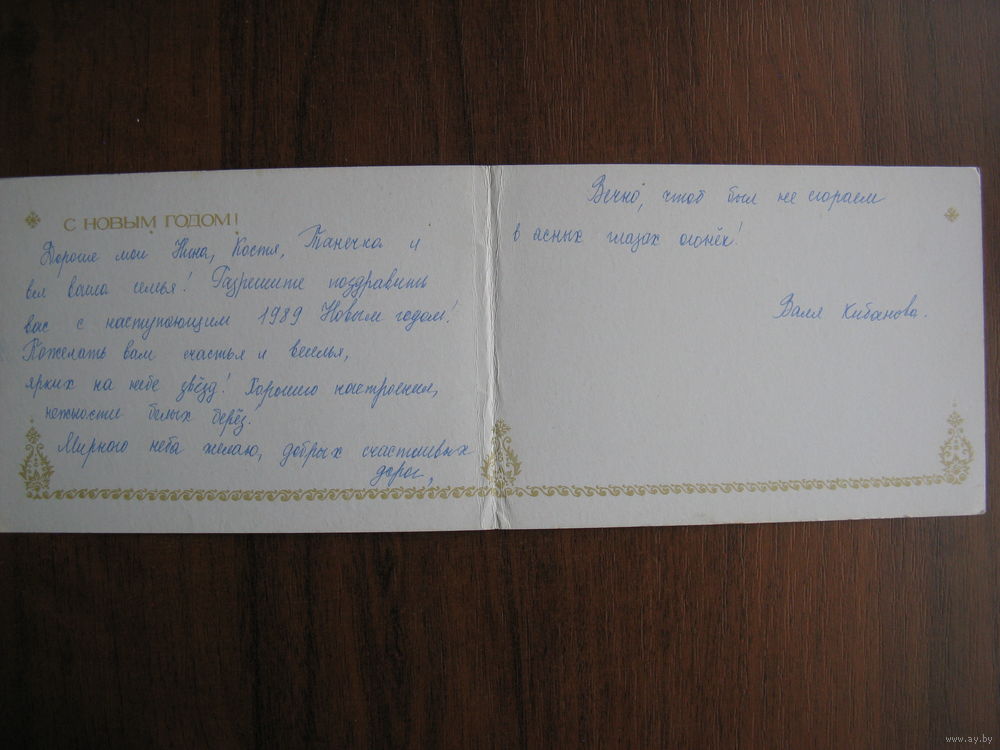 С НОВЫМ ГОДОМ!
Дорогие мои Нина, Костя, Танечка и
вся ваша семья! Разрешите поздравить
вас с наступающим 1989 Новым годом!
Пожелать вам счастья и веселья,
ярких на небе звёзд! Хорошего настроения,
нежности белых берёз!
Мирного неба желаю, добрых счастливых
дорог,
Вечно, чтоб был не сгораем
в ясных глазах огонёк!
Валя Кибанова.
www.ay.by